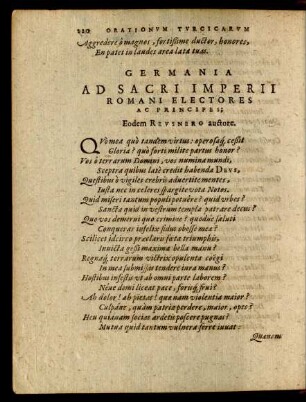 220 ORATIONVM TVRCICARVM
Aggredere ô magnos, fortissime ductor, honores,
En patet in laudes area lata tuas.
GERMANIA
AD SACRI IMPERII
ROMANI ELECTORES
AC PRINCIPES:
Eodem REVSNERO auctore.
QVò mea quò tandem virtus: operosaq́; cessit
Gloria? quò forti milite partus honor?
Vos ô terrarum Domini, vos numina mundi,
Sceptra quibus latè credit habenda DEVS,
Questibus ô vigiles crebris aduertite mentes,
Iusta nec in celeres spargite vota Notos.
Quid miseri tantum populi potuêre? quid vrbes?
Sancta quid in vestrum templa patrare decus?
Quo vos demerui quo crimine? quodue saluti
Conquerar infelix sidus obesse mea?
Scilicet idcirco praelaris facta triumphis,
Inuicta gessi maxima bella manu?
Regnaq́; terrarum victrix opulenta coëgi
In mea submissas tendere iura manus?
Hostibus infestis vt ab omni parte laborem?
Néue domi liceat pace, foriuq́; frui?
Ah dolor! ah pietas! quae nam violentia maior?
Culpáne, quàm patria perdere, maior, opes?
Heu quianam socias ardetis poscere pugnas?
Mutua quid tantum vulnera ferre iuuat:
Quanam